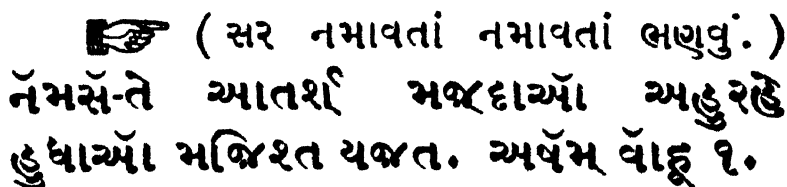 ☞ ( સર નમાવતાં નમાવતાં ભણવું. )
નૅમસૅ-તે આતર્શ મજદાઑ અહુરહે
હુધાઑ મજિશ્ત યજત. અષૅમ્ વૉહૂ ૧.